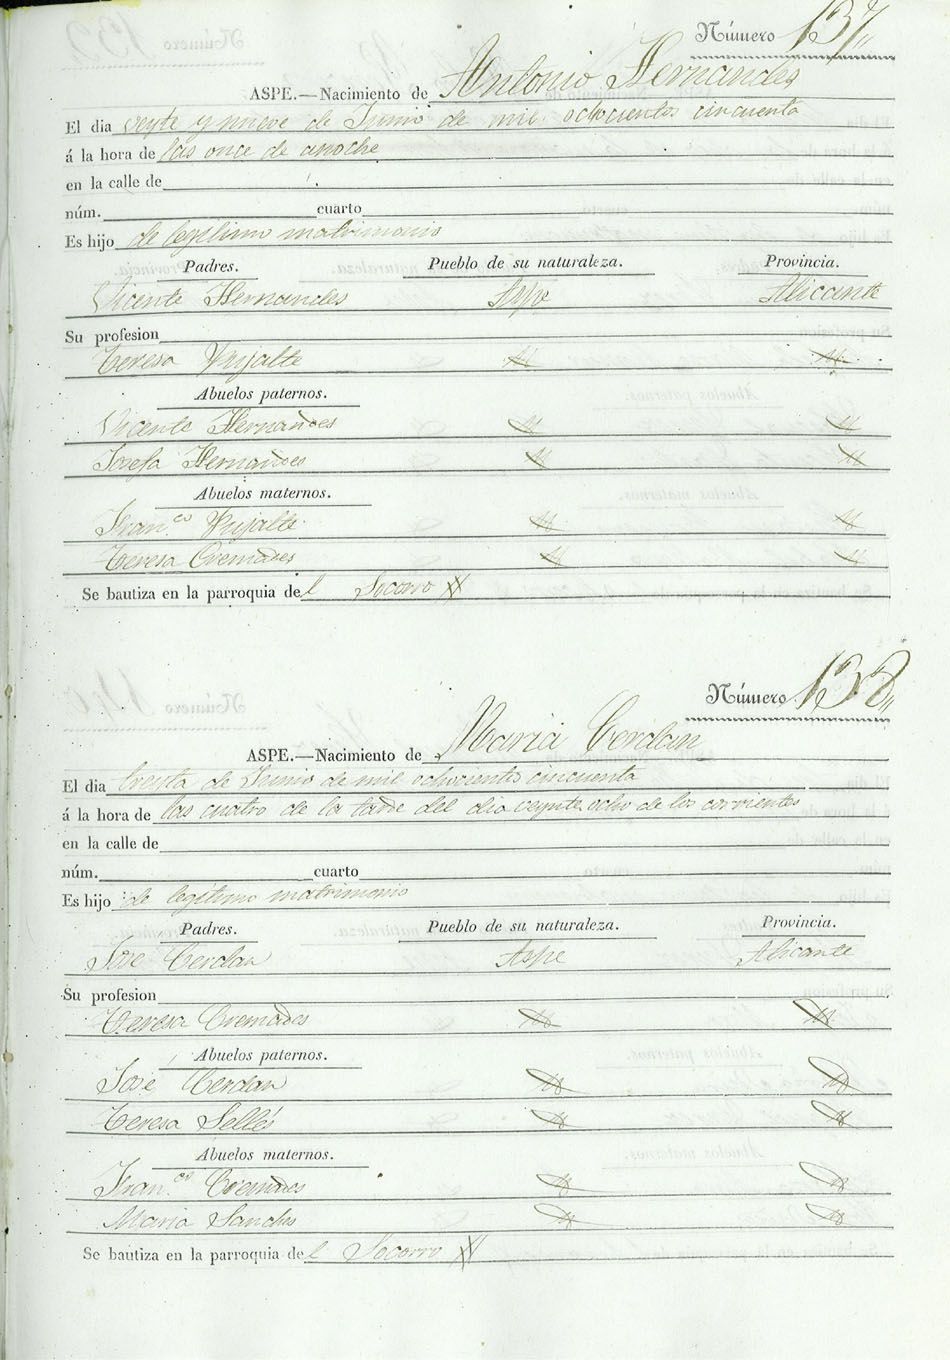 Número 137,,
ASPE.—Nacimiento de Antonio Hernandes
El dia veyte y nueve de Junio de mil ochocientos cincuenta
á la hora de las once de anoche
en la calle de
núm. cuarto
Es hijo de legitimo matrimonio
Padres. Pueblo de su naturaleza. Provincia.
Vicente Hernandes Aspe Alicante
Su profesion
Teresa Pujalte
Abuelos paternos.
Vicente Hernandes
Josefa Hernandes
Abuelos maternos.
Fran.co Pujalte
Teresa Cremades
Se bautiza en la parroquia del Socorro
Número 138,,
ASPE.—Nacimiento de Maria Cerdan
El dia treyta de Junio de mil ochocientos cincuenta
á la hora de las cuatro de la tarde del dia veynte ocho de los corrientes
en la calle de
núm. cuarto
Es hijo de legitimo matrimonio
Padres. Pueblo de su naturaleza. Provincia.
Jose Cerdan Aspe Alicante
Su profesion
Teresa Cremades
Abuelos paternos.
José Cerdan
Teresa Sellés
Abuelos maternos.
Fran.co Cremades
Maria Sanches
Se bautiza en la parroquia del Socorro